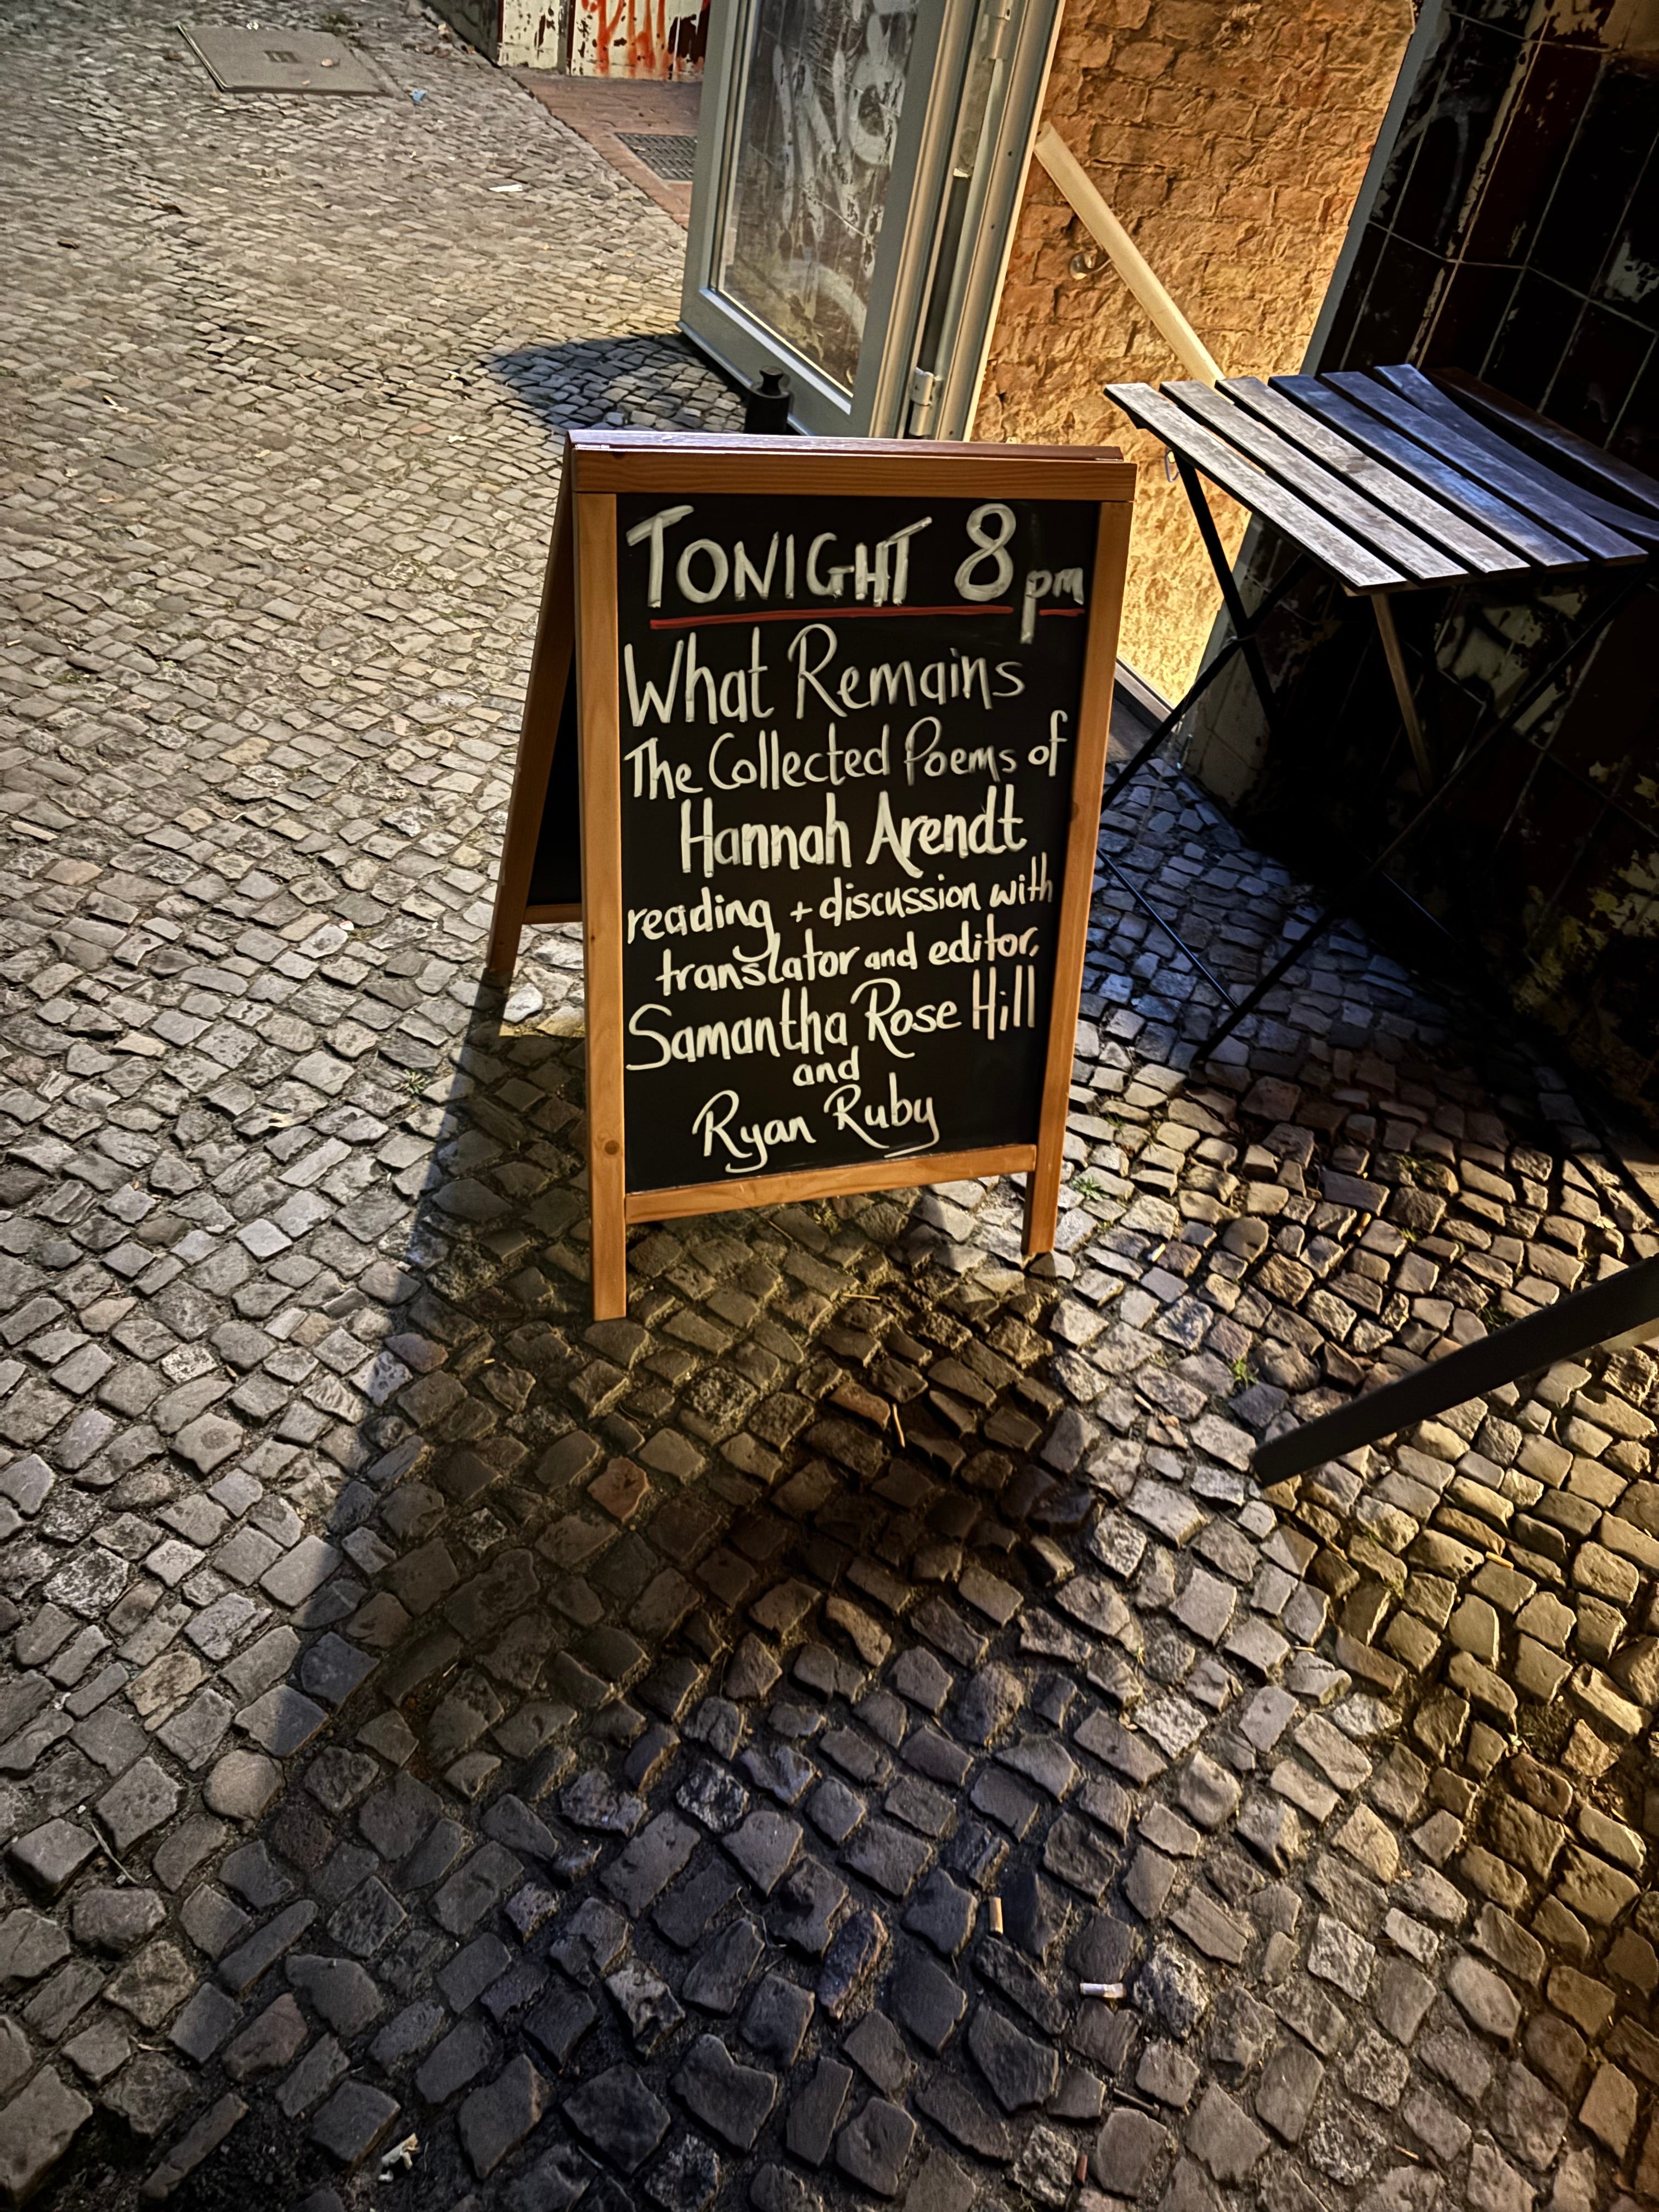 TONIGHT 8pm
What Remains
The Collected Poems of
Hannah Arendt
reading + discussion with
translator and editor,
Samantha Rose Hill
and
Ryan Ruby